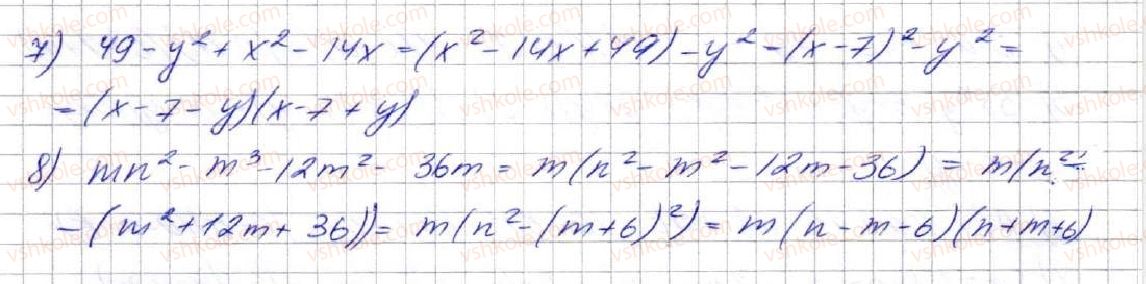 7) 49 - y² + x² - 14x = (x² - 14x + 49) - y² - (x - 7)² - y² =
= (x - 7 - y)(x - 7 + y)
8) mn² - m³ - 12m² - 36m = m(n² - m² - 12m - 36) = m(n² -
- (m² + 12m + 36)) = m(n² - (m + 6)²) = m(n - m - 6)(n + m + 6)